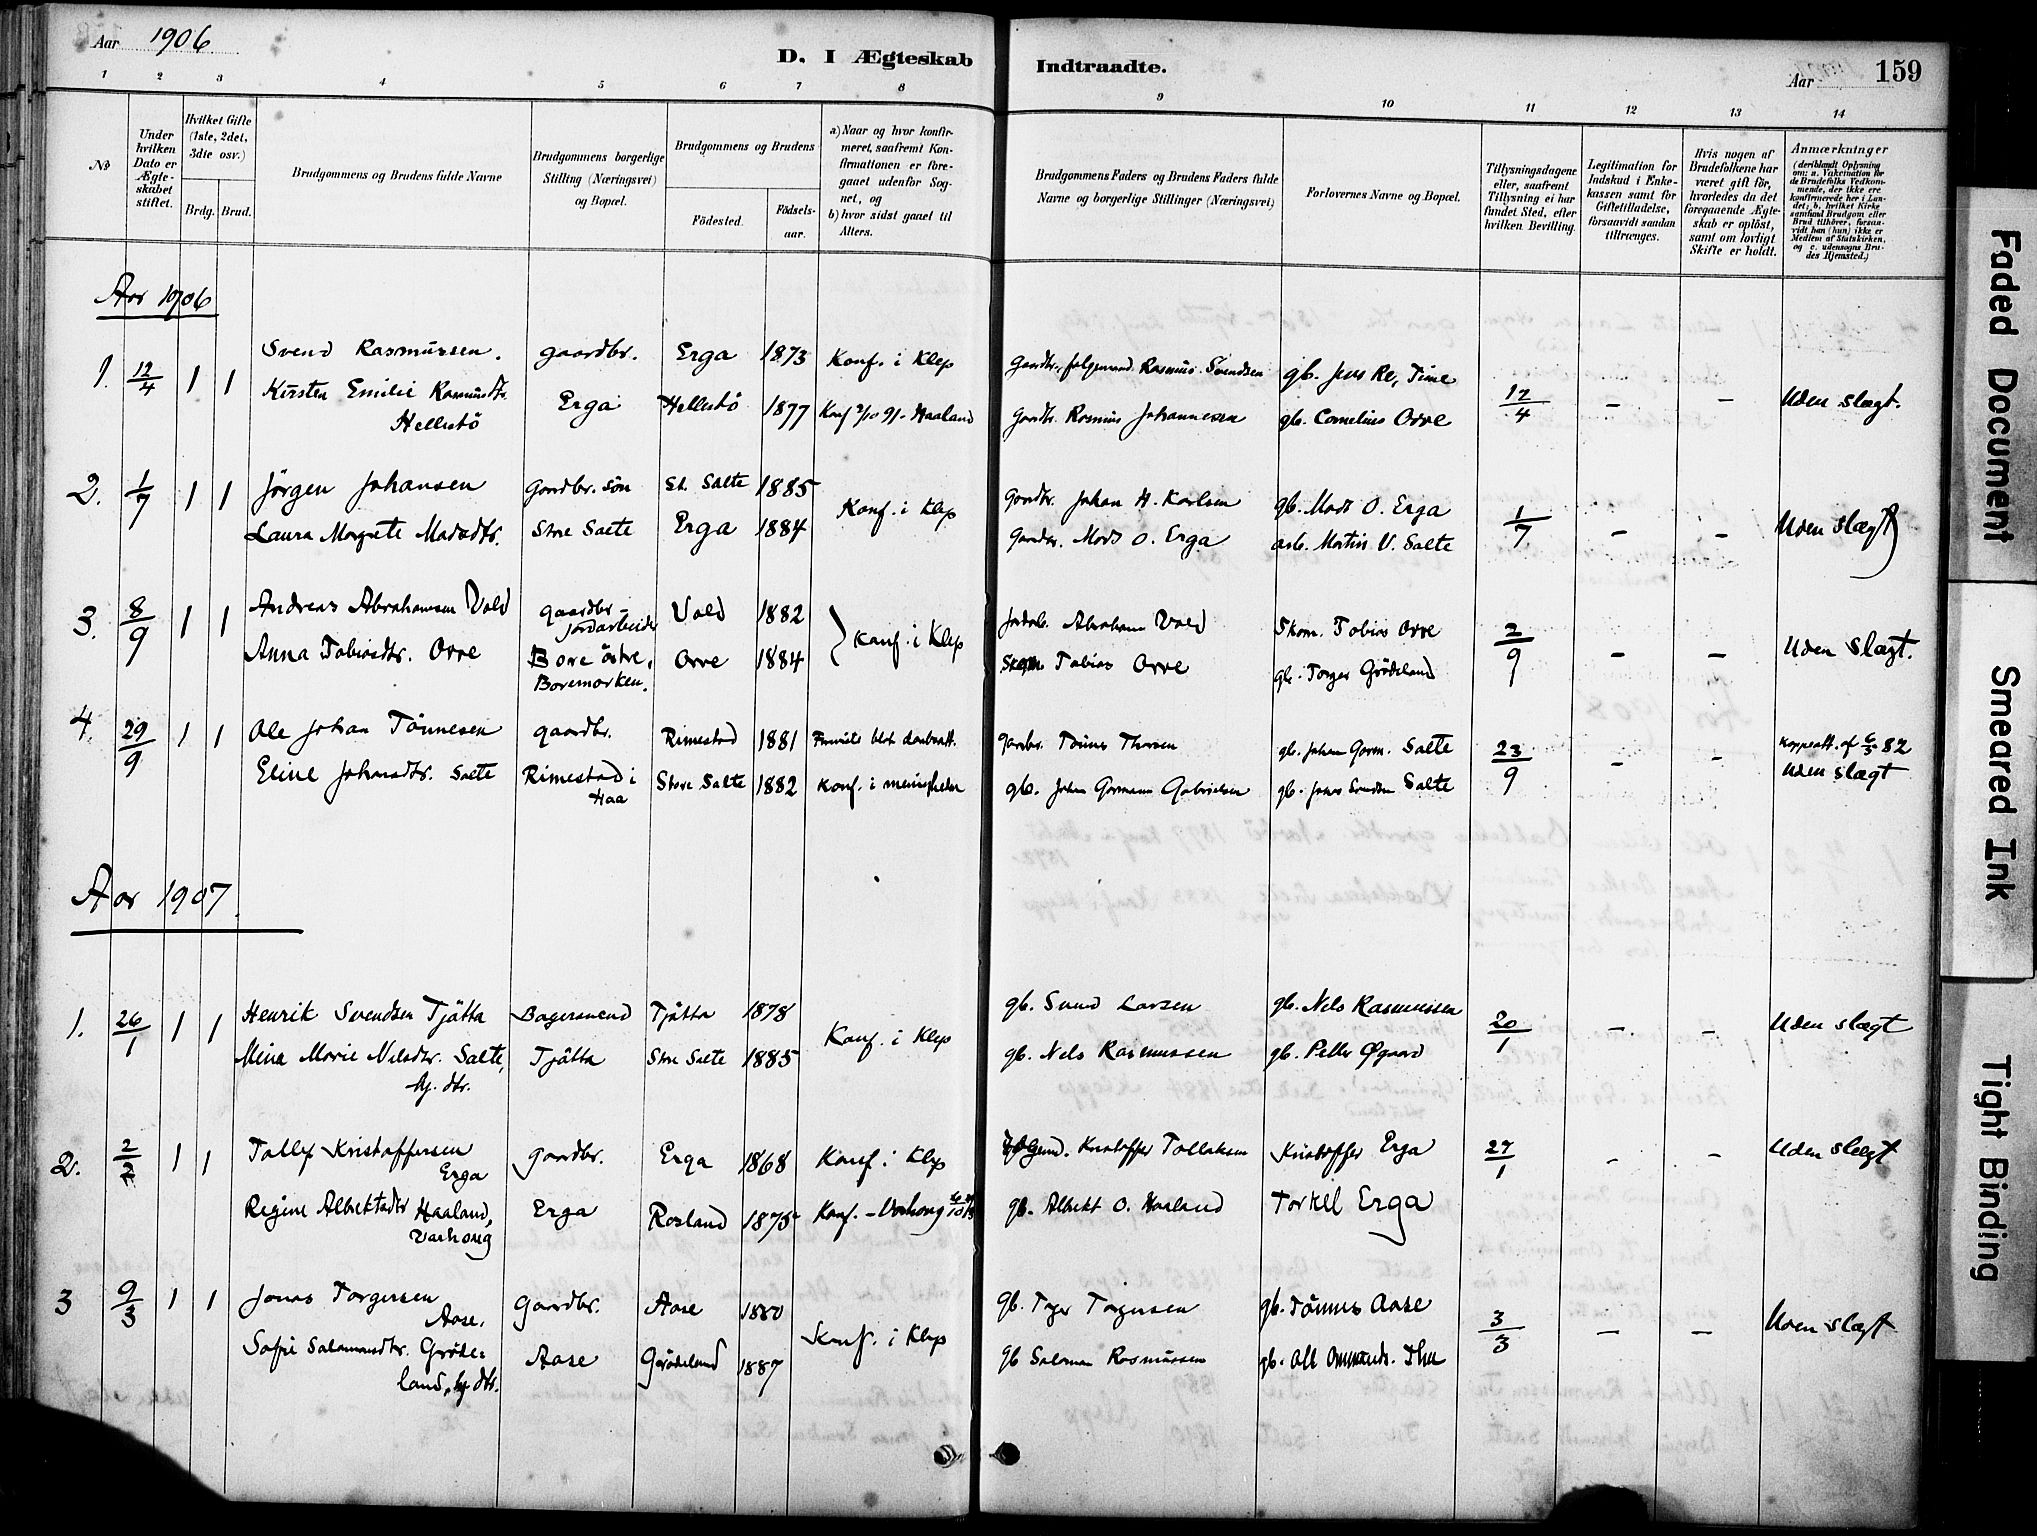 Aar 1906
D. I Ægteskab Indtraadte.
Aar 159
1 2 3 4 5 6 7 8 9 10 11 12 13 14
No
Under hvilken Dato er Ægteskabet stiftet.
Hvilket Gifte (1ste, 2det, 3die osv.)
Brdg. Brud.
Brudgommens og Brudens fulde Navne
Brudgommens borgerlige Stilling (Næringsvei) og Bopæl.
Brudgommens og Brudens
Födested. Födselsaar.
a) Naar og hvor konfirmeret, saafremt Konfirmationen er foregaaet udenfor Sognet, og
b) hvor sidst gaaet til Alters.
Brudgommens Faders og Brudens Faders fulde Navne og borgerlige Stillinger (Næringsvei)
Forlovernes Navne og Bopæl.
Tillysningsdagene eller, saafremt Tillysning ei har fundet Sted, efter hvilken Bevilling.
Legitimation for Indskud i Enkekassen samt for Giftetilladelse, forsaavidt saadan tiltrænges.
Hvis nogen af Brudefolkene har været gift för, hvorledes da det foregaaende Ægteskab er oplöst, samt om lovligt Skifte er holdt.
Anmærkninger
(deriblandt Oplysning om: a. Vakcination for de Brudefolks Vedkommende, der ikke ere konfirmerede her i Landet; b. hvilket Kirkesamfund Brudgom eller Brud tilhörer, forsaavidt han (hun) ikke er Medlem af Statskirken, og c. udensogns Brudes Hjemsted.)
Aar 1906
1. 12/4 1 1 Svend Rasmussen. gaardbr. Erga 1873 Konf. i Klep Gaardbr. Rasmus Svendsen gb. Jens Re, Time 12/4 - - Uden slægt.
Kirsten Emilie Rasmusdtr. Erga Hellestö 1877 Konf 2/10 91 - Haaland Gaardbr. Rasmus Johannesen gb. Cornelius Orre
Hellestö
2. 1/7 1 1 Jörgen Johansen Gaardbr. sön St. Salte 1885 Konf. i Klep Gaardbr. Johan H. Karlsen gb. Mads O. Erga 1/7 - - Uden slægt
Laura Margrete Madsdtr. Store Salte Erga 1884 Gaardbr. Mads O. Erga arb. Martin V. Salte
3. 8/9 1 1 Andreas Abrahamsen Vold gaardbr - Vold 1882 Konf. i Klep Jordarb. Abraham Vold Skom. Tobias Orre 2/9 - - Uden slægt.
jordarbeider
Anna Tobiasdtr. Orre Bore östre, Orre 1884 Skom Tobias Orre gb. Torger Grödeland
Boremarken.
4. 29/9 1 1 Ole Johan Tönnesen gaardbr. Rimestad 1881 Gaardbr. Tönnes Thorsen gb. Johan Gorm. Salte 23/9 - - Koppeatt. af 6/5 82
Eline Johansdtr. Salte Rimestad i Store Salte 1882 Konf. i menigheden gb. Johan Gormann Gabrielsen gb. Jonas Svendsen Salte Uden slægt
Haa
Aar 1907.
1. 26/1 1 1 Henrik Svendsen Tjötta Bagersvend Tjötta 1878 Konf. i Klep gb. Svend Larsen gb. Nels Rasmussen 20/1 - - Uden slægt
Mina Marie Nelsdtr. Salte, Tjötta Store Salte 1885 gb. Nels Rasmussen gb. Peller Øgaard
hj. dtr.
2. 2/2 1 1 Tollef Kristoffersen gaardbr. Erga 1868 Konf. i Klep Kristoffer Tollaksen Kristoffer Erga 27/1 - - Uden slægt
Erga
Regine Albrektsdtr Haaland, Erga Rosland 1875 Konf. - Varhaug gb. Albrekt O. Haaland Torkell Erga
Varhoug
3 9/3 1 1 Jonas Torgersen Gaardbr. Aase 1880 Konf. i Klep gb. Torger Torgersen gb. Tönnes Aase 3/3 - - Uden slægt
Aase.
Sofie Salamondtr. Gröde- Aase Grödeland 1887 gb Salomon Rasmussen gb. Ole Ommunds. Thu
land, hj. dtr.
Faded Document
Smeared Ink
Tight Binding